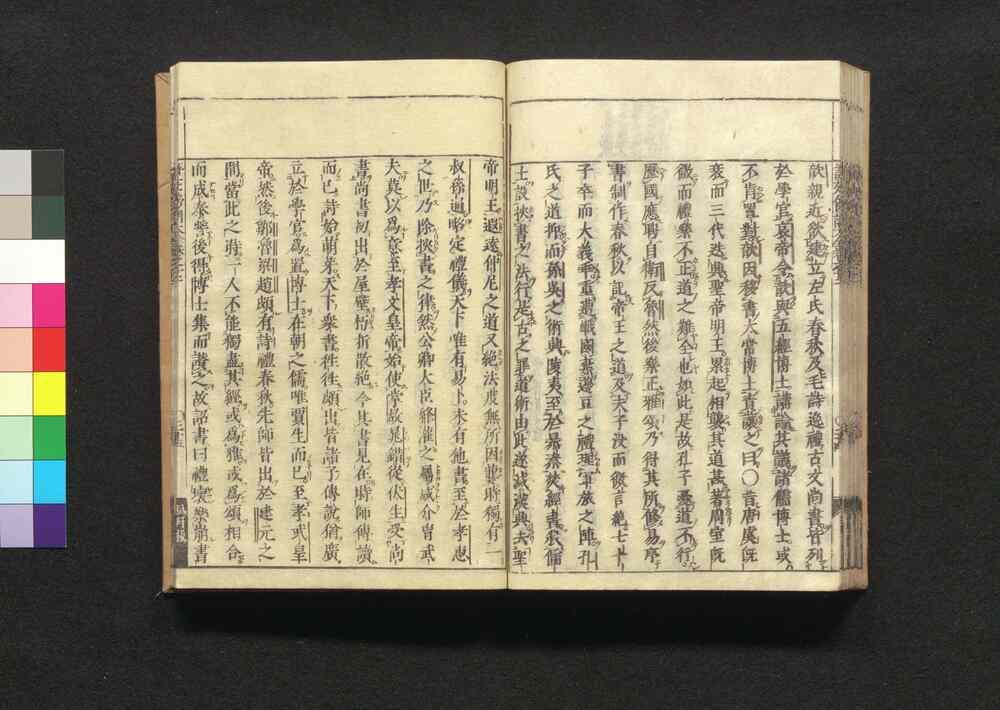 歆親近欲建立左氏春秋及毛詩逸禮古文尚書皆列
於學官哀帝令歆與五經博士講論其議諸儒博士或
不肯置對歆因移書太常博士責讓之曰〇昔唐虞既
衰而三代迭興聖帝明王累起相襲其道甚著周室既
微而禮樂不正道之難全也如此是故孔子憂道不行
歷國應聘自衛反魯然後樂正雅頌乃得其所修易序
書制作春秋以記帝王之道及夫子沒而微言絶七十
子卒而大義乖重遭戰國棄籩豆之禮理軍旅之陣孔
氏之道抑而孫吳之術興陵夷至於暴秦焚經書殺儒
士設挾書之法行是古之罪道術由此遂滅漢興去聖
帝明王遐遠仲尼之道又絶法度無所因襲時獨有一
叔孫通略定禮儀天下唯有易卜未有他書至於孝惠
之世乃除挾書之律然公卿大臣絳灌之屬咸介冑武
夫莫以爲意至孝文皇帝始使掌故晁錯從伏生受尚
書尚書初出於屋壁朽折散絶今其書見在時師傳讀
而已詩始萌芽天下衆書往往頗出皆諸子傳說猶廣
立於學官爲置博士在朝之儒唯賈生而已至孝武皇
帝然後鄒魯梁趙頗有詩禮春秋先師皆出於建元之
間當此之時一人不能獨盡其經或爲雅或爲頌相合
而成泰誓後得博士集而讚之故詔書曰禮壞樂崩書